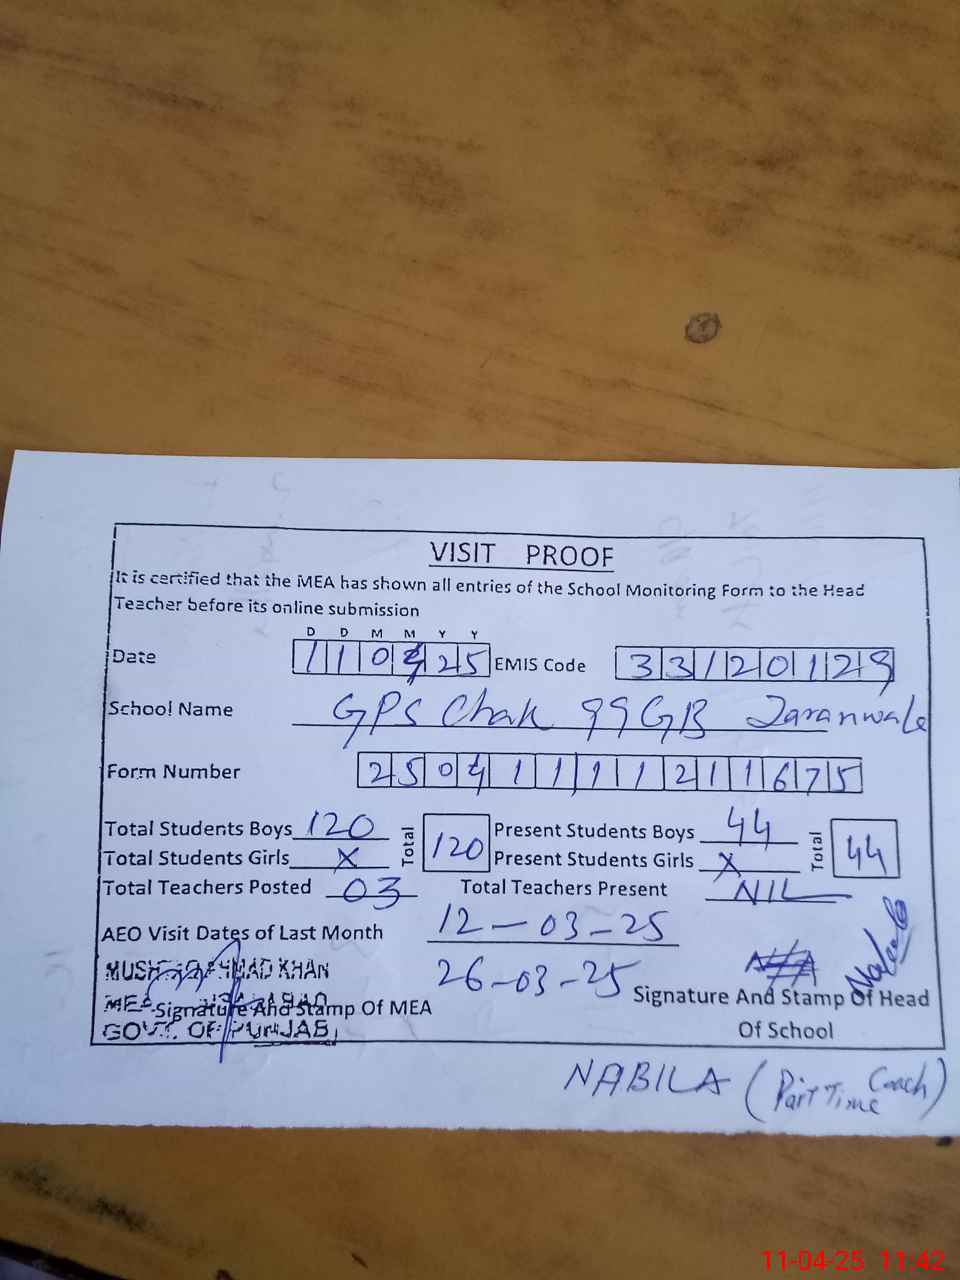 VISIT PROOF
It is certified that the MEA has shown all entries of the School Monitoring Form to the Head
Teacher before its online submission
D D M M Y Y
Date 110425 EMIS Code 33120129
School Name GPS Chak 99GB Jaranwala
Form Number 250411111211675
Total Students Boys 120 Total 120 Present Students Boys 44 Total 44
Total Students Girls X Present Students Girls X
Total Teachers Posted 03 Total Teachers Present NIL
AEO Visit Dates of Last Month 12-03-25
26-03-25
AHMAD KHAN
MEA
GOVT. OF PUNJAB
Signature And Stamp Of MEA
Nabila
Signature And Stamp Of Head
Of School
NABILA (Part Time Coach)
11-04-25 11:42